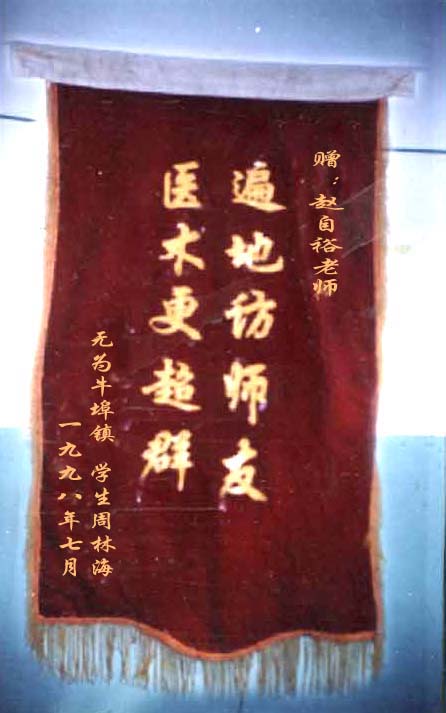 赠：赵自裕老师
遍地访师友
医术更超群
无为牛埠镇 学生周林海
一九九八年七月